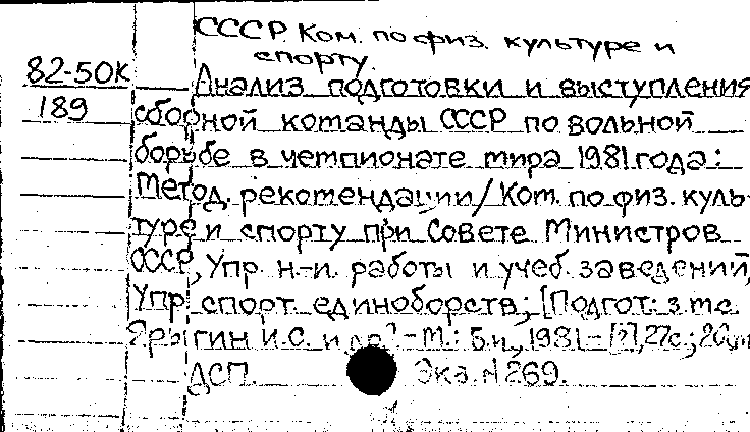 СССР. Ком. по физ. культуре и
спорту.
82-50К
189
Анализ подготовки и выступления
сборной команды СССР по вольной
борьбе в чемпионате мира 1981 года:
Метод. рекомендации/Ком. по физ. куль-
туре и спорту при Совете Министров
СССР, Упр. н.-и. работы и учеб. заведений,
Упр. спорт. единоборств; [Подгот. з.т.с.
Ярыгин И.С. и др.]. - М.: Б.и., 1981. - 27с.; 20см
ДСП. Экз. N 269.